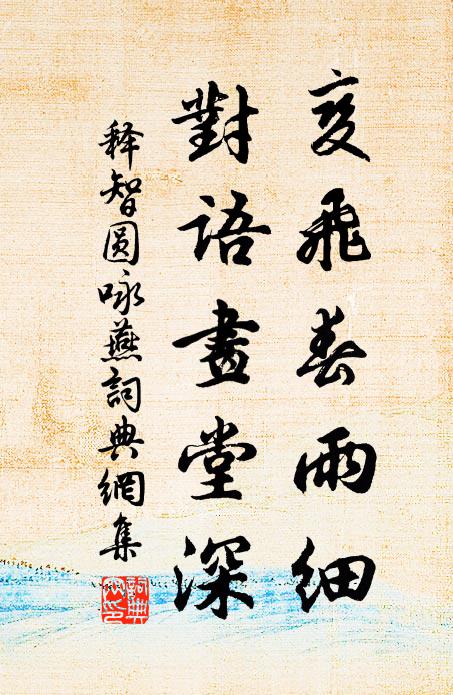 交飛春雨細
對語畫堂深
释智圆咏燕詞典網集